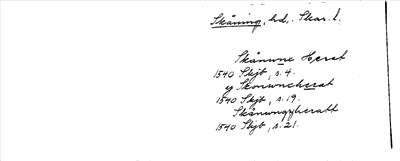 Skåning, hd., Skar. l.
Skånwne Herat
1540 Skjb, s. 4.
y Skonwncherat
1540 Skjb, s. 19.
Skånwngxheratt
1540 Skjb, s. 21.